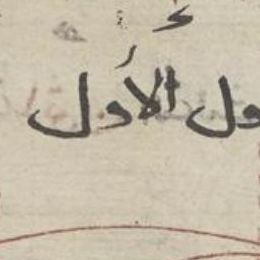 ول الأول